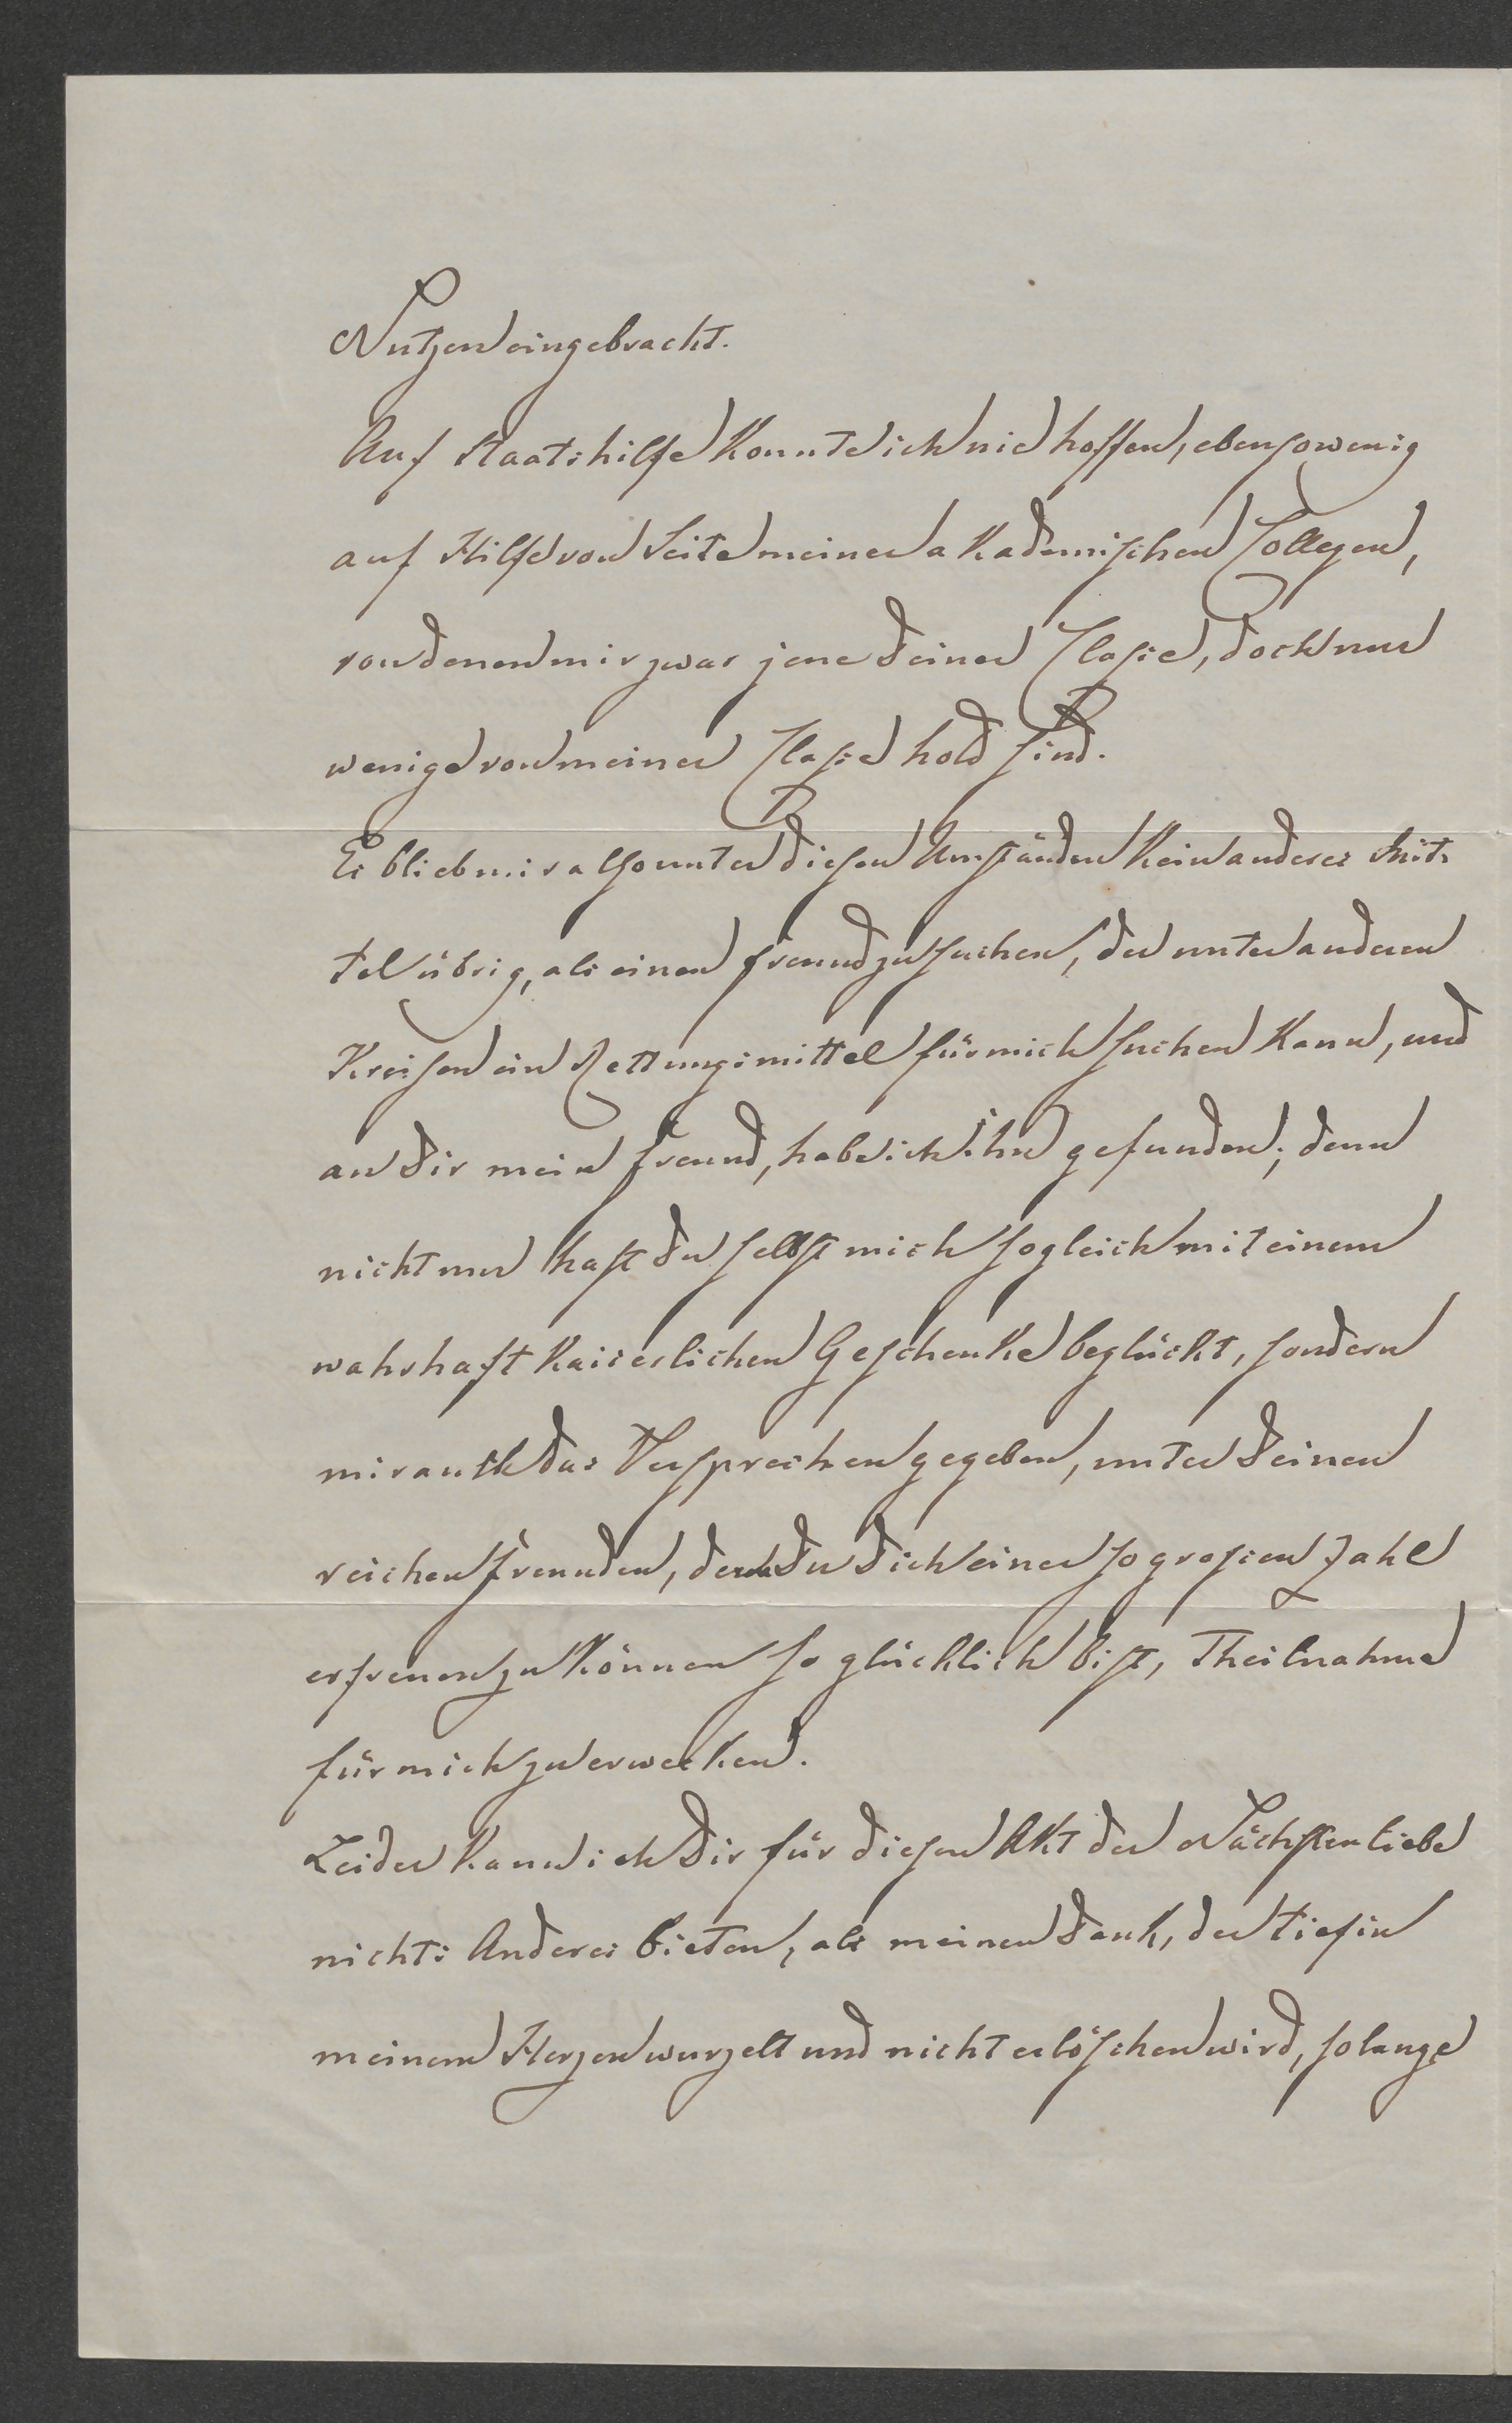 Nutzen eingebracht.
Auf Staatshilfe konnte ich nie hoffen, ebensowenig
auf Hilfe von Seite meiner akademischen Collegen,
von denen mir zwar jene Deiner Classe, doch nur
wenige von meiner Classe hold sind.
Es blieb mir also unter diesen Umständen kein anderes Mit-
tel übrig, als einen Freund zu suchen, der unter anderen
Kreisen ein Rettungsmittel für mich suchen kann, und
an Dir mein Freund, habe ich ihn gefunden; denn
nicht nur hast Du selbst mich sogleich mit einem
wahrhaft kaiserlichen Geschenke beglückt, sondern
mir auch das Versprechen gegeben, unter Deinen
reichen Freunden, deren Du Dich einer so grossen Zahl
erfreuen zu können so glücklich bist, Theilnahme
für mich zu erwecken.
Leider kann ich Dir für diesen Akt der Nächstenliebe
nichts Anderes bieten, als meinen Dank, der tief in
meinem Herzen wurzelt und nicht erlöschen wird, solange